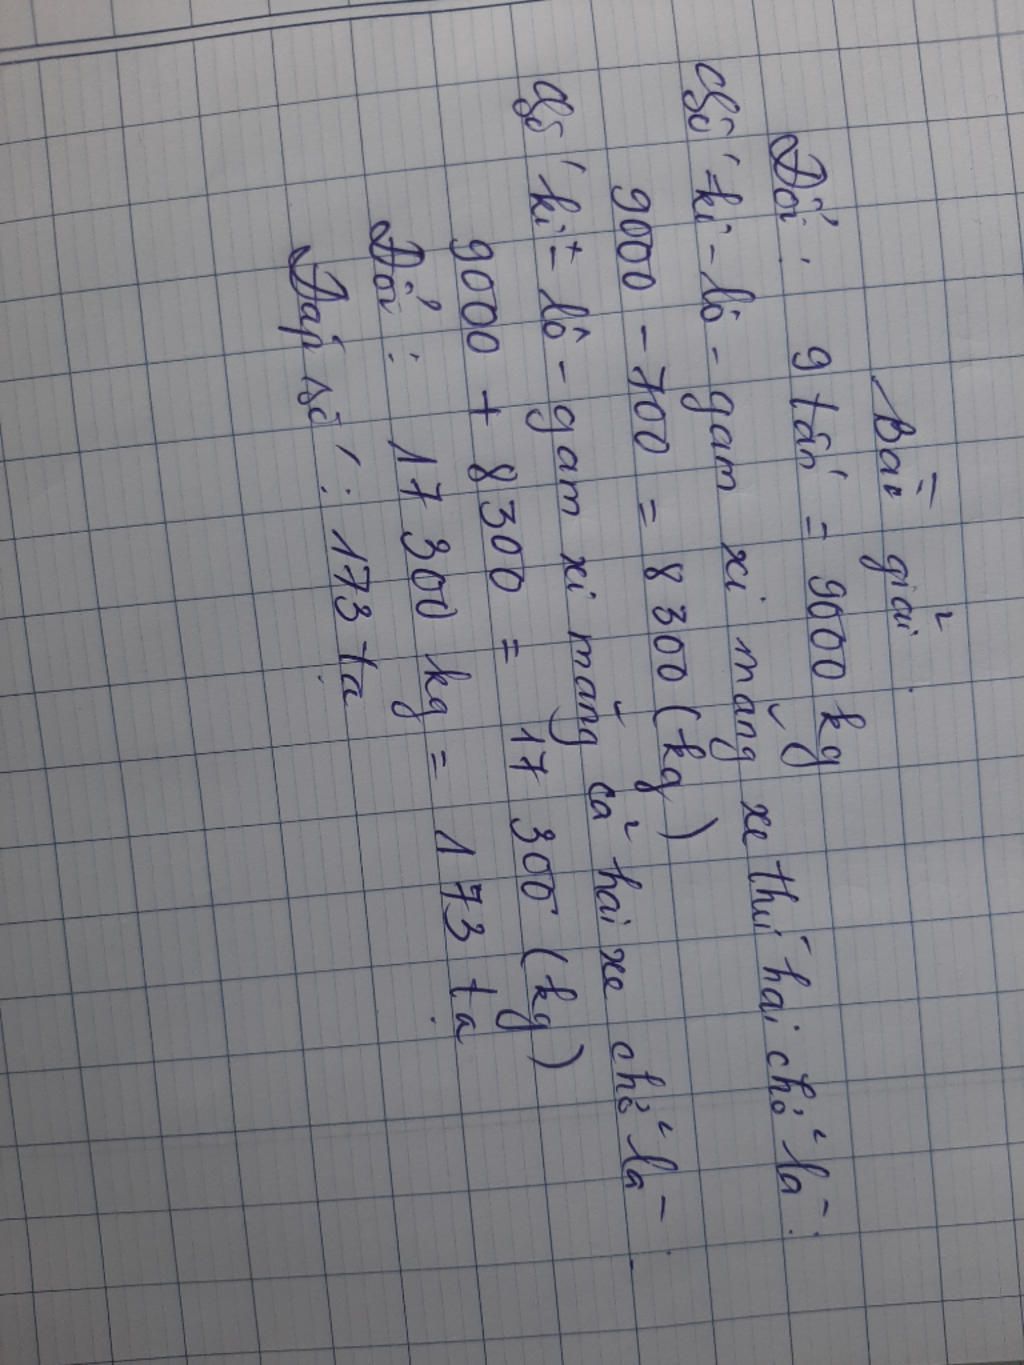 Bài giải
Đổi : 9 tấn = 9000 kg
Số ki-lô-gam xi măng xe thứ hai chở là :
9000 - 700 = 8 300 (kg)
Số ki-lô-gam xi măng cả hai xe chở là :
9000 + 8 300 = 17 300 (kg)
Đổi : 17 300 kg = 173 tạ
Đáp số : 173 tạ